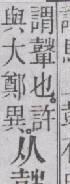 謂鼙也。許
與大鄭異。从